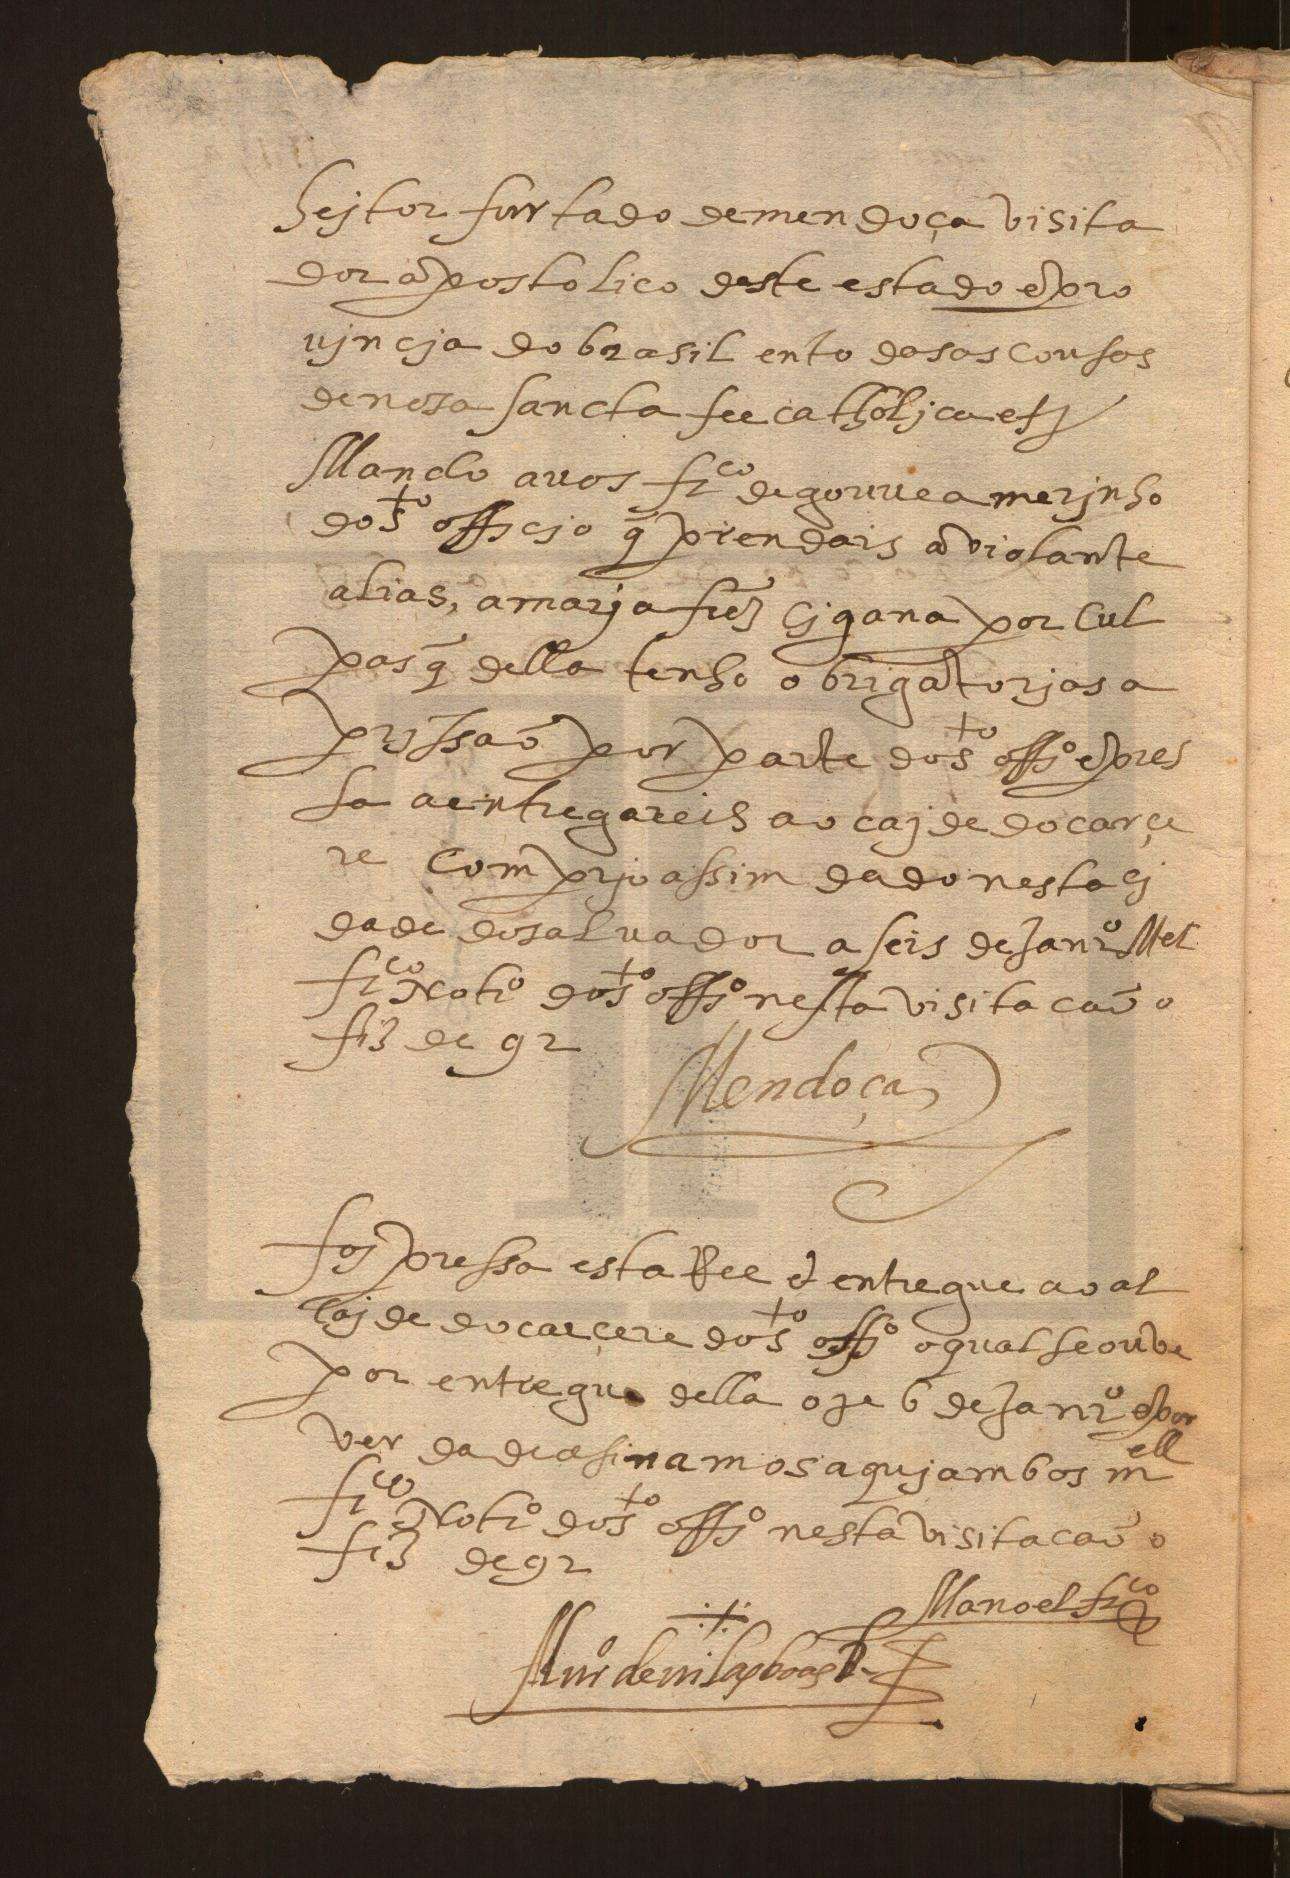 hejtor furtado de mendoça visita
dor apostolico deste estado e pro
vjncja do brasil ento das as cousas
de nosa sancta fee cathólica etz
Mando a vos frco de gouvea merjnho
do sto officjo q̃ prendais a violante
alias, a marja frez cjgana por cul
pas q̃ della tenho obrigatorjas a
prjssaõ por parte do sto offio e pres
sa a entregareis ao cajde do carçe
re comprjo assim dado nesta cj
dade do salvador a seis de Janro Mel
frco Notro do sto offio nesta visitacaõ o
fiz de 92
Mendoça
foj pressa esta Ree e entregue ao al
cajde do carçere do sto offio o qual se ouve
por entregue della oje 6 de Janro e por
verdade asinamos aquj ambos mell
frco Notro do sto offio nesta visitacaõ o
fiz de 92
Manoel frco
de vilasboas